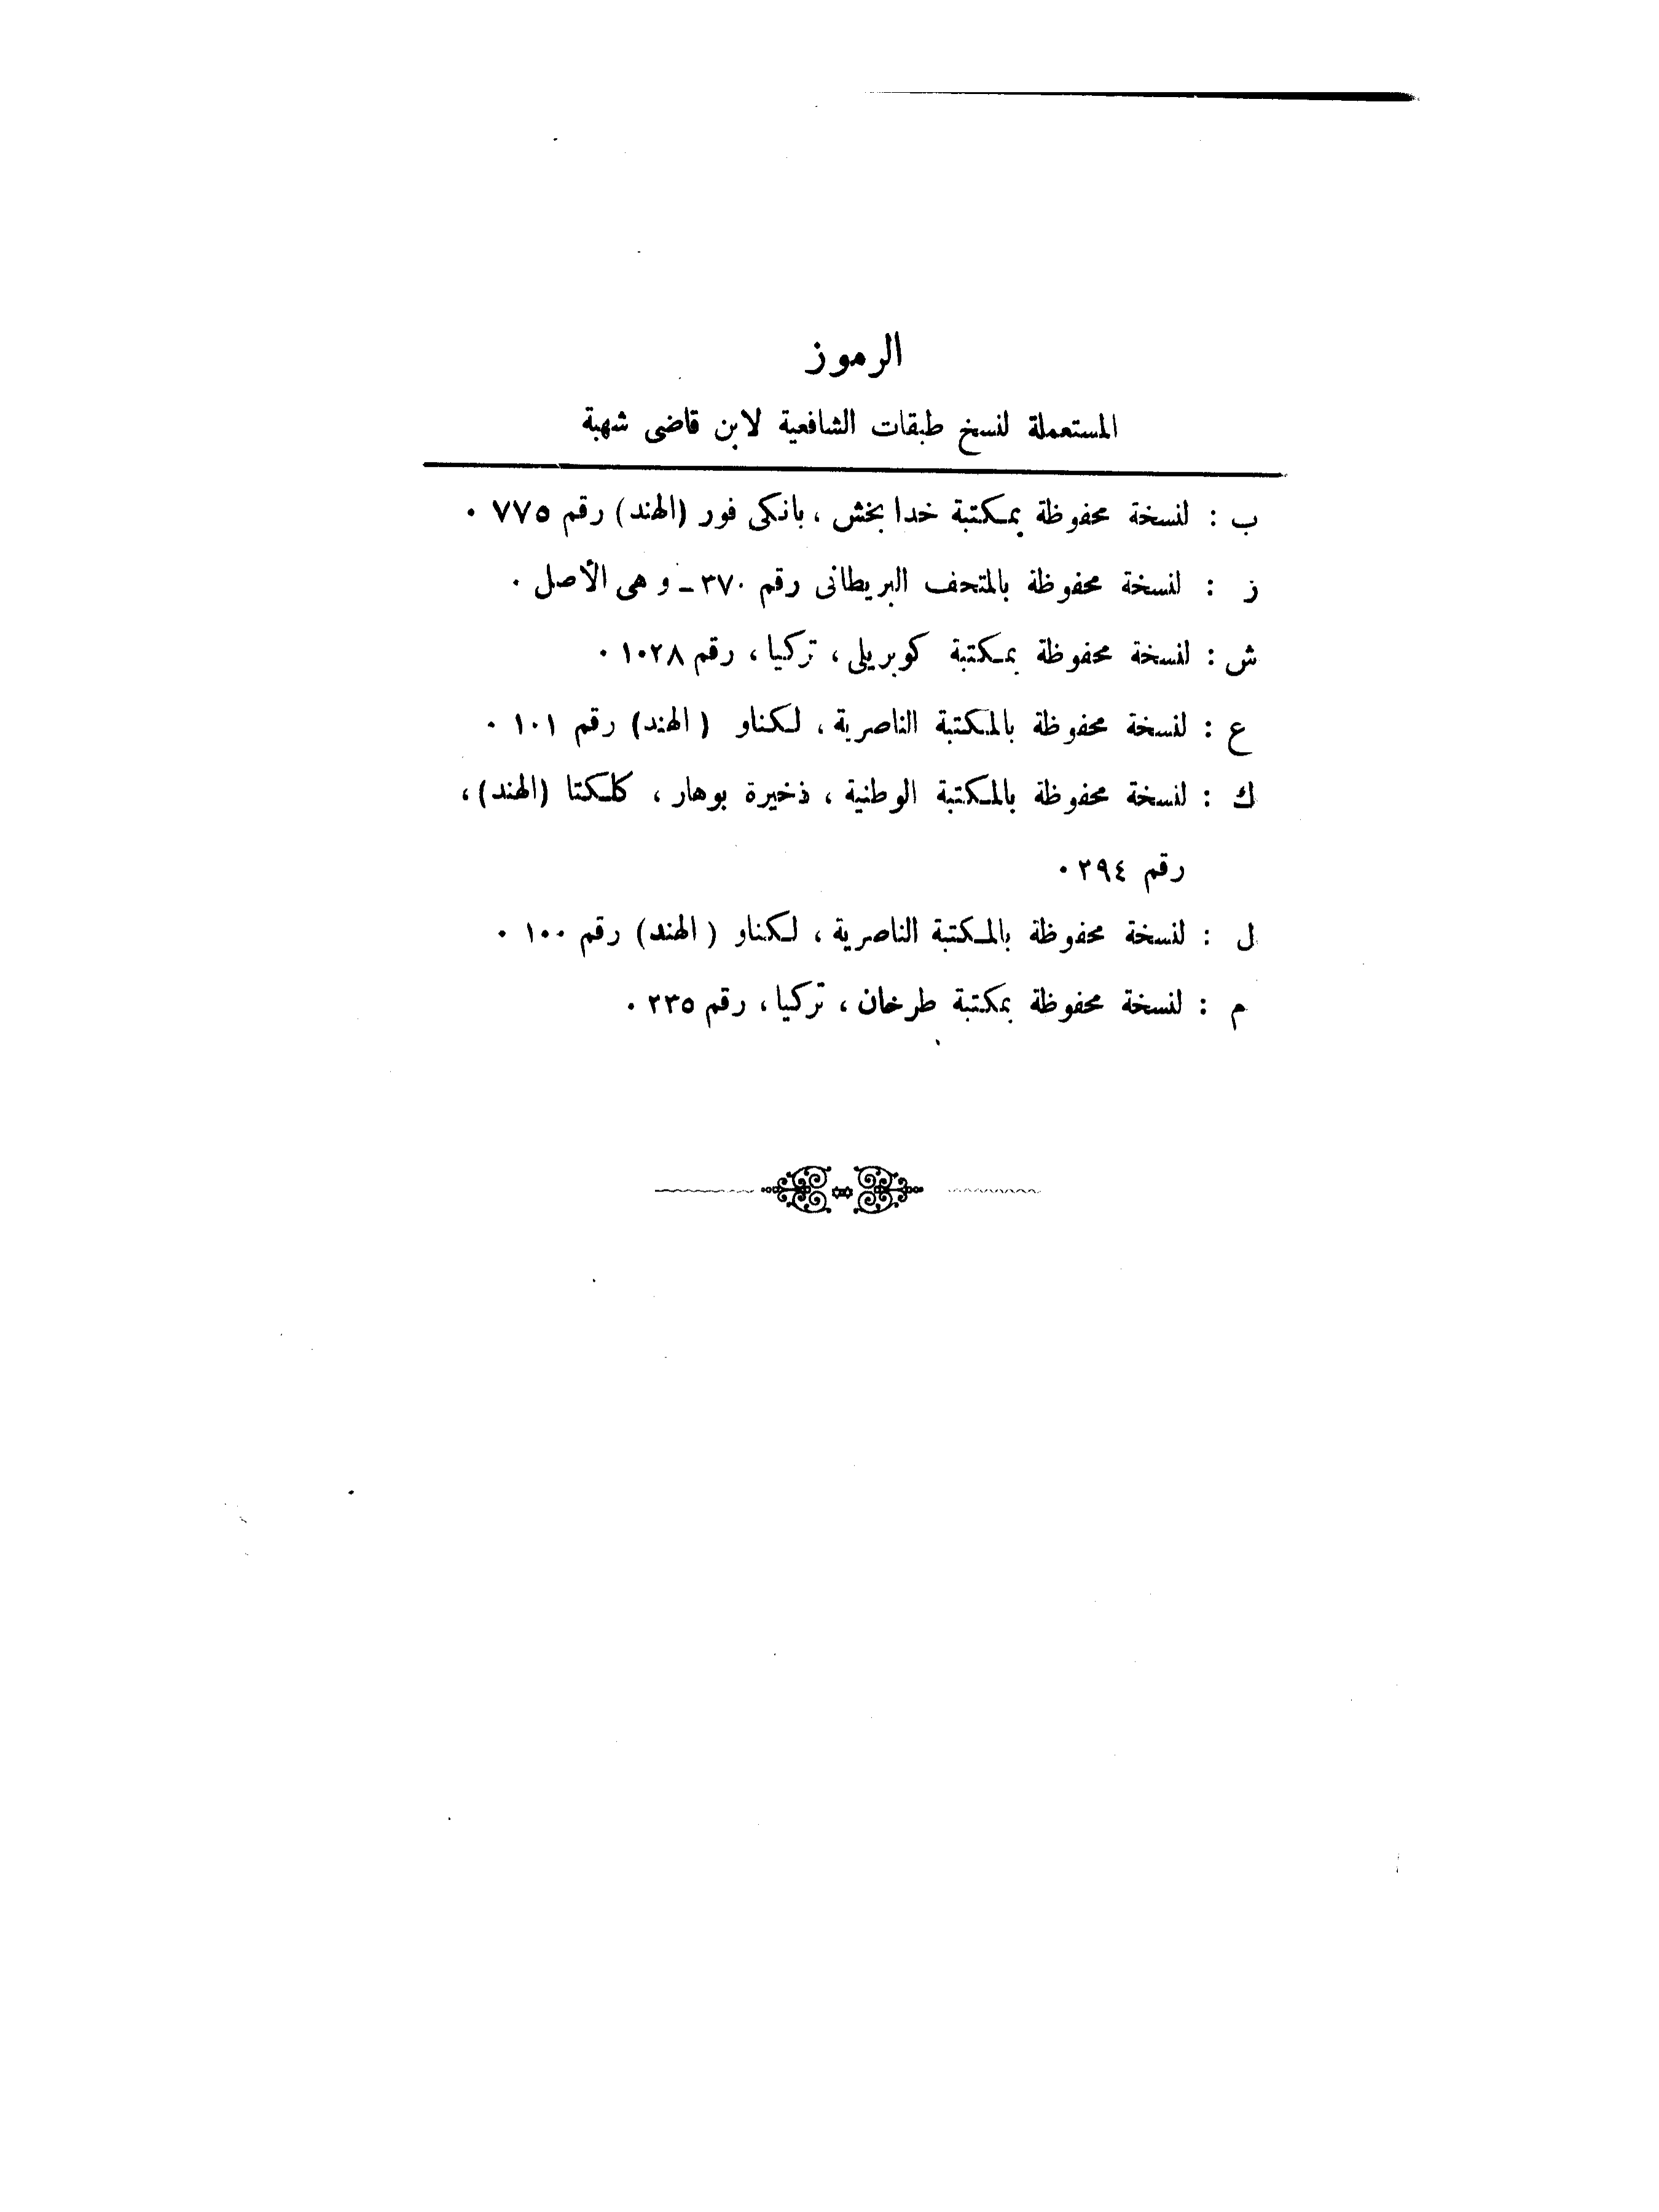 الرموز
المستعملة لنسخ طبقات الشافعية لابن قاضى شهبة
ب : لنسخة محفوظة بمكتبة خدا بخش ، بانكى فور (الهند) رقم ٧٧٥ ٠
ز : لنسخة محفوظة بالمتحف البريطانى رقم ٣٧٠ - و هى الأصل ٠
ش : لنسخة محفوظة بمكتبة كوبريلى ، تركيا ، رقم ١٠٢٨ ٠
ع : لنسخة محفوظة بالمكتبة الناصرية ، لكناو ( الهند) رقم ١٠١ ٠
ك : لنسخة محفوظة بالمكتبة الوطنية ، ذخيرة بوهار ، كلكتا (الهند) ،
رقم ٢٩٤ ٠
ل : لنسخة محفوظة بالمكتبة الناصرية ، لكناو ( الهند) رقم ١٠٠ ٠
م : لنسخة محفوظة بمكتبة طرخان ، تركيا ، رقم ٢٣٥ ٠